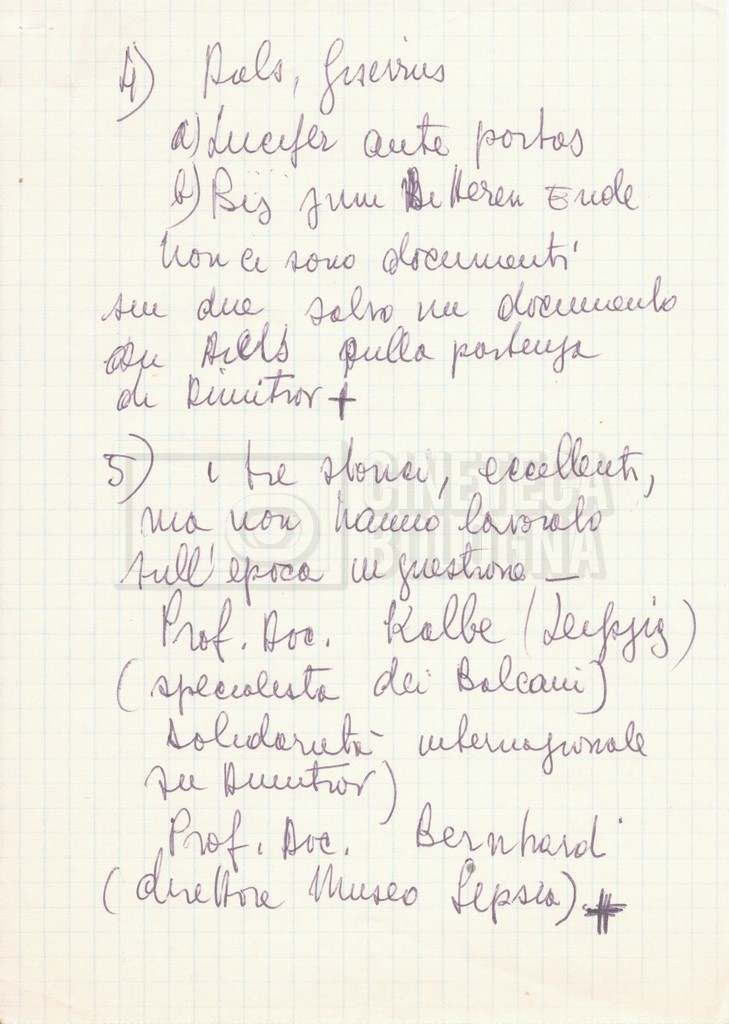 4) Diels, Gisevius
a) Lucifer ante portas
b) Bis zum Bitteren Ende
Non ci sono documenti
sui due salvo un documento
su Diels sulla partenza
di Dimitrov +
5) i tre storici, eccellenti,
ma non hanno lavorato
sull'epoca in questione —
Prof. Doc. Kalbe (Leipzig)
(specialista dei Balcani)
solidarietà internazionale
su Dimitrov)
Prof. Doc. Bernhard
(direttore Museo Lipsia)
CINETECA
BOLOGNA